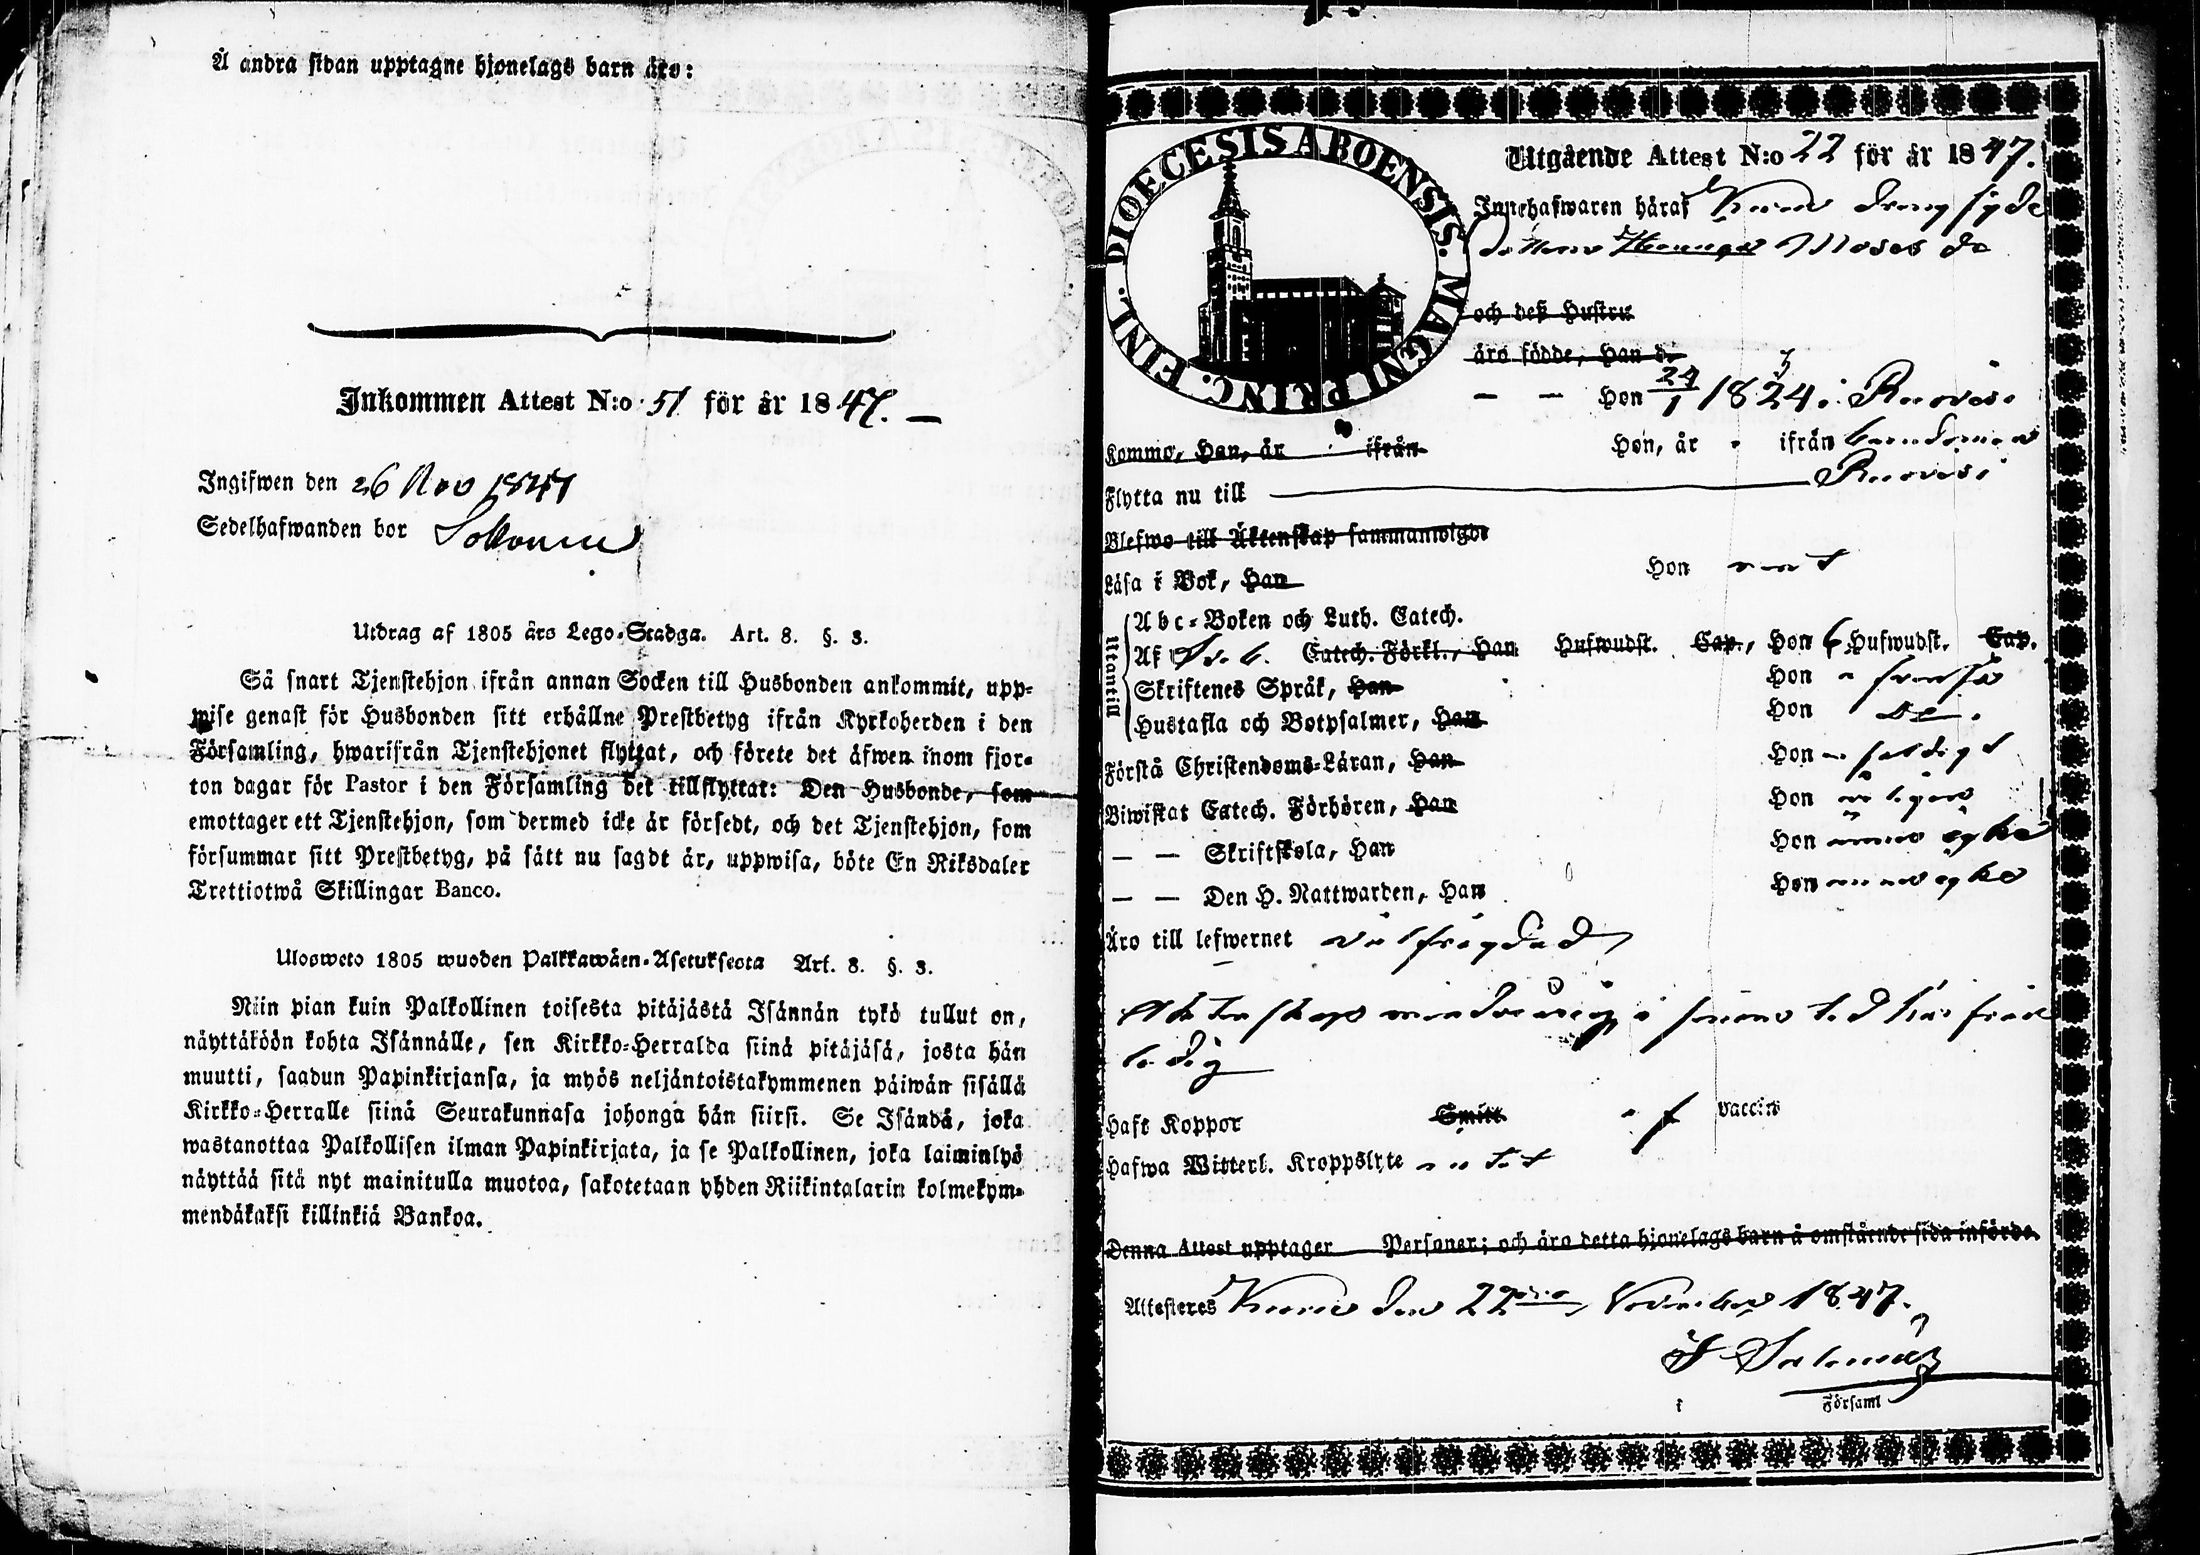 Å andra sidan upptagne hjonelags barn äro:
Inkommen Attest N:o 51 för år 1847.
Ingifwen den 26 Nov 1847
Sedelhafwanden bor
Utdrag af 1805 års Lego-Stadga. Art. 8. §. 3.
Så snart Tjenstehjon ifrån annan Socken till Husbonden ankommit, upp-
wise genast för Husbonden sitt erhållne Prestbetyg ifrån Kyrkoherden i den
Församling, hwarifrån Tjenstehjonet flyttat, och förete det äfwen inom fjor-
ton dagar för Pastor i den Församling det tillflyttat: Den Husbonde, som
emottager ett Tjenstehjon, som dermed icke är försedt, och det Tjenstehjon, som
försummar sitt Prestbetyg, på sätt nu sagdt är, uppwisa, böte En Riksdaler
Trettiotwå Skillingar Banco.
Ulosweto 1805 wuoden Palkkawäen-Asetuksesta Art. 8. §. 3.
Niin pian kuin Palkollinen toisesta pitäjästä Isännän tykö tullut on,
näyttäköön kohta Isännälle, sen Kirkko-Herralda siinä pitäjäsä, josta hän
muutti, saadun Papinkirjansa, ja myös neljäntoistakymmenen päiwän sisällä
Kirkko-Herralle siinä Seurakunnasa johonga hän siirsi. Se Isändä, joka
wastanottaa Palkollisen ilman Papinkirjata, ja se Palkollinen, joka laiminlyö
näyttää sitä nyt mainitulla muotoa, sakotetaan yhden Riikintalarin kolmekym-
mendäkaksi killinkiä Bankoa.
DIOECESIS ABOENSIS. MAGNI PRINC. FINL.
Utgående Attest N:o 22 för år 1847.
Innehafwaren häraf
Moses
och dess Hustru
äro födde, Han d.
— — Hon 24/1 1824 i Ruovesi
Kommo, Han, år ifrån Hon, år ifrån barndomen
Flytta nu till Ruovesi
Blefwo till Äktenskap sammanwigde
Läsa i Bok, Han Hon
Utantill
Abc-Boken och Luth. Catech.
Af Catech. Förkl., Han Hufwudst. Cap., Hon 6 Hufwudst. Cap.
Skriftenes Språk, Han Hon
Hustafla och Botpsalmer, Han Hon
Förstå Christendoms-Läran, Han Hon
Biwistat Catech. Förhören, Han Hon
— — Skriftskola, Han Hon
— — Den H. Nattwarden, Han Hon
Äro till lefwernet välfrägdad
ledig
Haft Koppor Smitt vaccin
Hafwa Witterl. Kroppslyte
Denna Attest upptager Personer; och äro detta hjonelags barn å omstående sida införde.
Attesteres den 22 November 1847.
i Församl